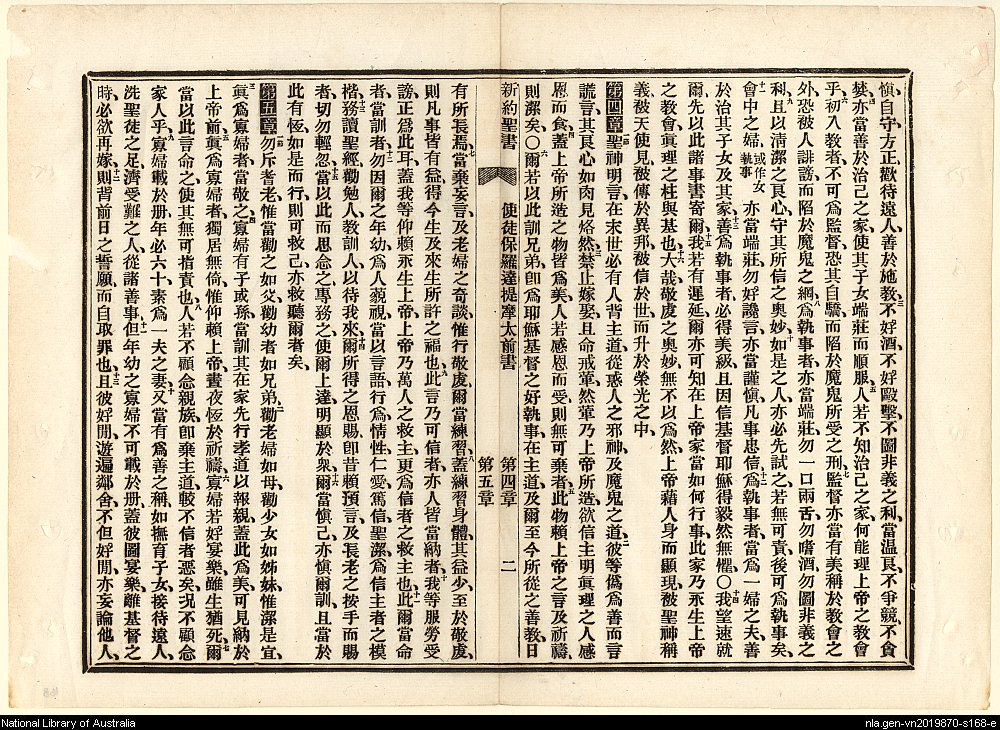 愼自守方正歡待遠人善於施教三不好酒不好毆擊不圖非義之利當温良不爭競不貪
婪四亦當善於治己之家使其子女端莊而順服五人若不知治己之家何能理上帝之教會
乎六初入教者不可爲監督恐其自驕而陷於魔鬼所受之刑七監督亦當有美稱於教會之
外恐被人誹謗而陷於魔鬼之網八爲執事者亦當端莊勿一口兩舌勿嗜酒勿圖非義之
利九且以清潔之良心守其所信之奥妙十如是之人亦必先試之若無可責後可爲執事矣
十一會中之婦或作女執事亦當端莊勿好讒言亦當謹愼凡事忠信十二爲執事者當爲一婦之夫善
於治其子女及其家十三善爲執事者必得美級且因信基督耶穌得毅然無懼〇十四我望速就
爾先以此諸事書寄爾十五我若有遲延爾亦可知在上帝家當如何行事此家乃永生上帝
之教會眞理之柱與基也十六大哉敬虔之奥妙無不以爲然上帝藉人身而顯現被聖神稱
義被天使見被傳於異邦被信於世而升於榮光之中
第四章一聖神明言在末世必有人背主道從惑人之邪神及魔鬼之道二彼等僞爲善而言
謊言其良心如肉見烙然三禁止嫁娶且命戒葷然葷乃上帝所造欲信主明眞理之人感
恩而食四蓋上帝所造之物皆爲美人若感恩而受則無可棄者五此物頼上帝之言及祈禱
則潔矣〇六爾若以此訓兄弟卽爲耶穌基督之好執事在主道及爾至今所從之善教日
新約聖書 使徒保羅達提摩太前書 第四章 第五章 二
有所長焉七當棄妄言及老婦之奇談惟行敬虔爾當練習八蓋練習身體其益少至於敬虔
則凡事皆有益得今生及來生所許之福也九此言乃可信者亦人皆當納者十我等服勞受
謗正爲此耳蓋我等仰賴永生上帝上帝乃萬人之救主更爲信者之救主也十一此爾當命
者當訓者十二勿因爾之年幼爲人藐視當以言語行爲情性仁愛篤信聖潔爲信主者之模
楷十三務讀聖經勸勉人教訓人以待我來十四爾所得之恩賜卽昔賴預言及長老之按手而賜
者切勿輕忽十五當以此而思念之專務之使爾上達明顯於衆十六爾當愼己亦愼爾訓且當於
此有恆如是而行則可救己亦救聽爾者矣
第五章一勿斥耆老惟當勸之如父勸幼者如兄弟二勸老婦如母勸少女如姊妹惟潔是宜
三眞爲寡婦者當敬之四寡婦有子或孫當訓其在家先行孝道以報親蓋此爲美可見納於
上帝前五眞爲寡婦者獨居無倚惟仰賴上帝晝夜恆於祈禱六寡婦若好宴樂雖生猶死七爾
當以此言命之使其無可指責也八人若不顧念親族卽棄主道較不信者惡矣況不顧念
家人乎九寡婦載於册年必六十素爲一夫之妻十又當有爲善之稱如撫育子女接待遠人
洗聖徒之足濟受難之人從諸善事十一但年幼之寡婦不可載於册蓋彼圖宴樂離基督之
時必欲再嫁十二則背前日之誓願而自取罪也十三且彼好閒遊遍鄰舍不但好閒亦妄論他人
National Library of Australia
nla.gen-vn2019870-s168-e